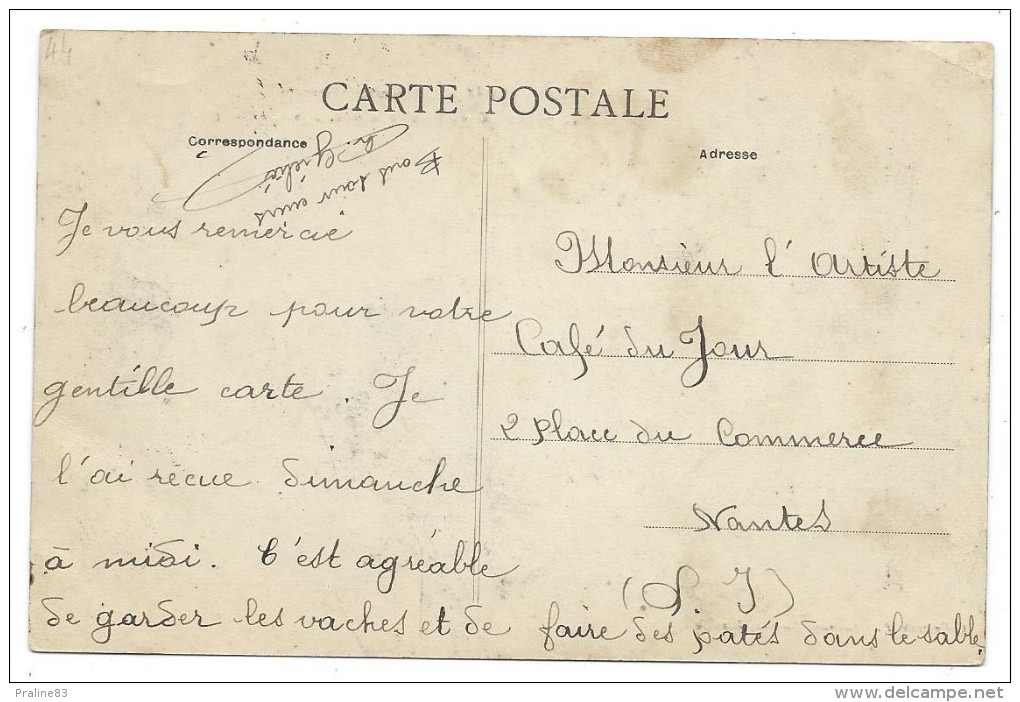 44
CARTE POSTALE
Correspondance
Adresse
Je vous remercie
beaucoup pour votre
gentille carte. Je
l'ai recue dimanche
à midi. C'est agréable
de garder les vaches et de faire des patés dans le sable!
Monsieur l'Artiste
Café du Jour
2 Place du Commerce
Nantes
(S. I)
Praline83
www.delcampe.net